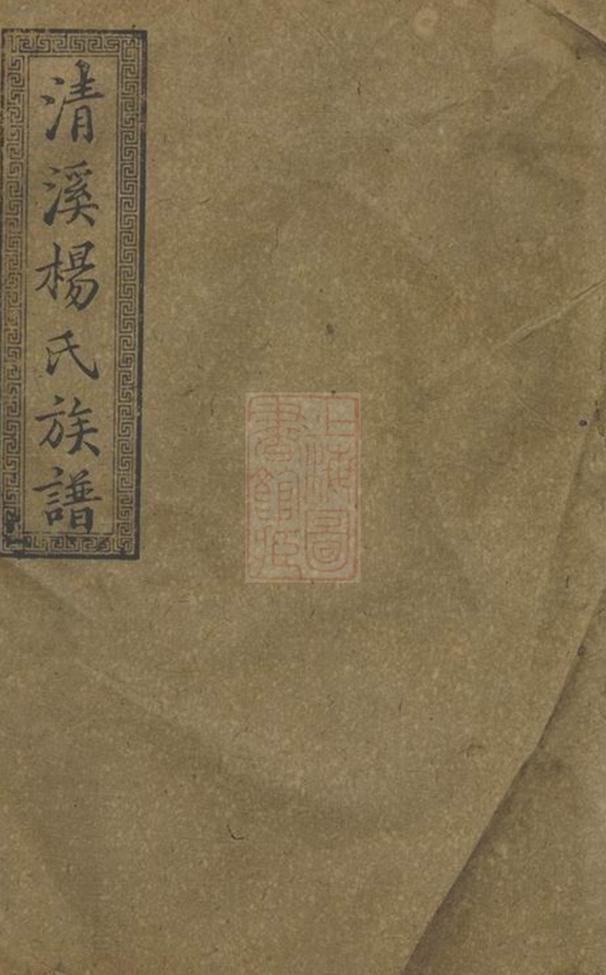 清溪楊氏族譜
上海圖
書館藏